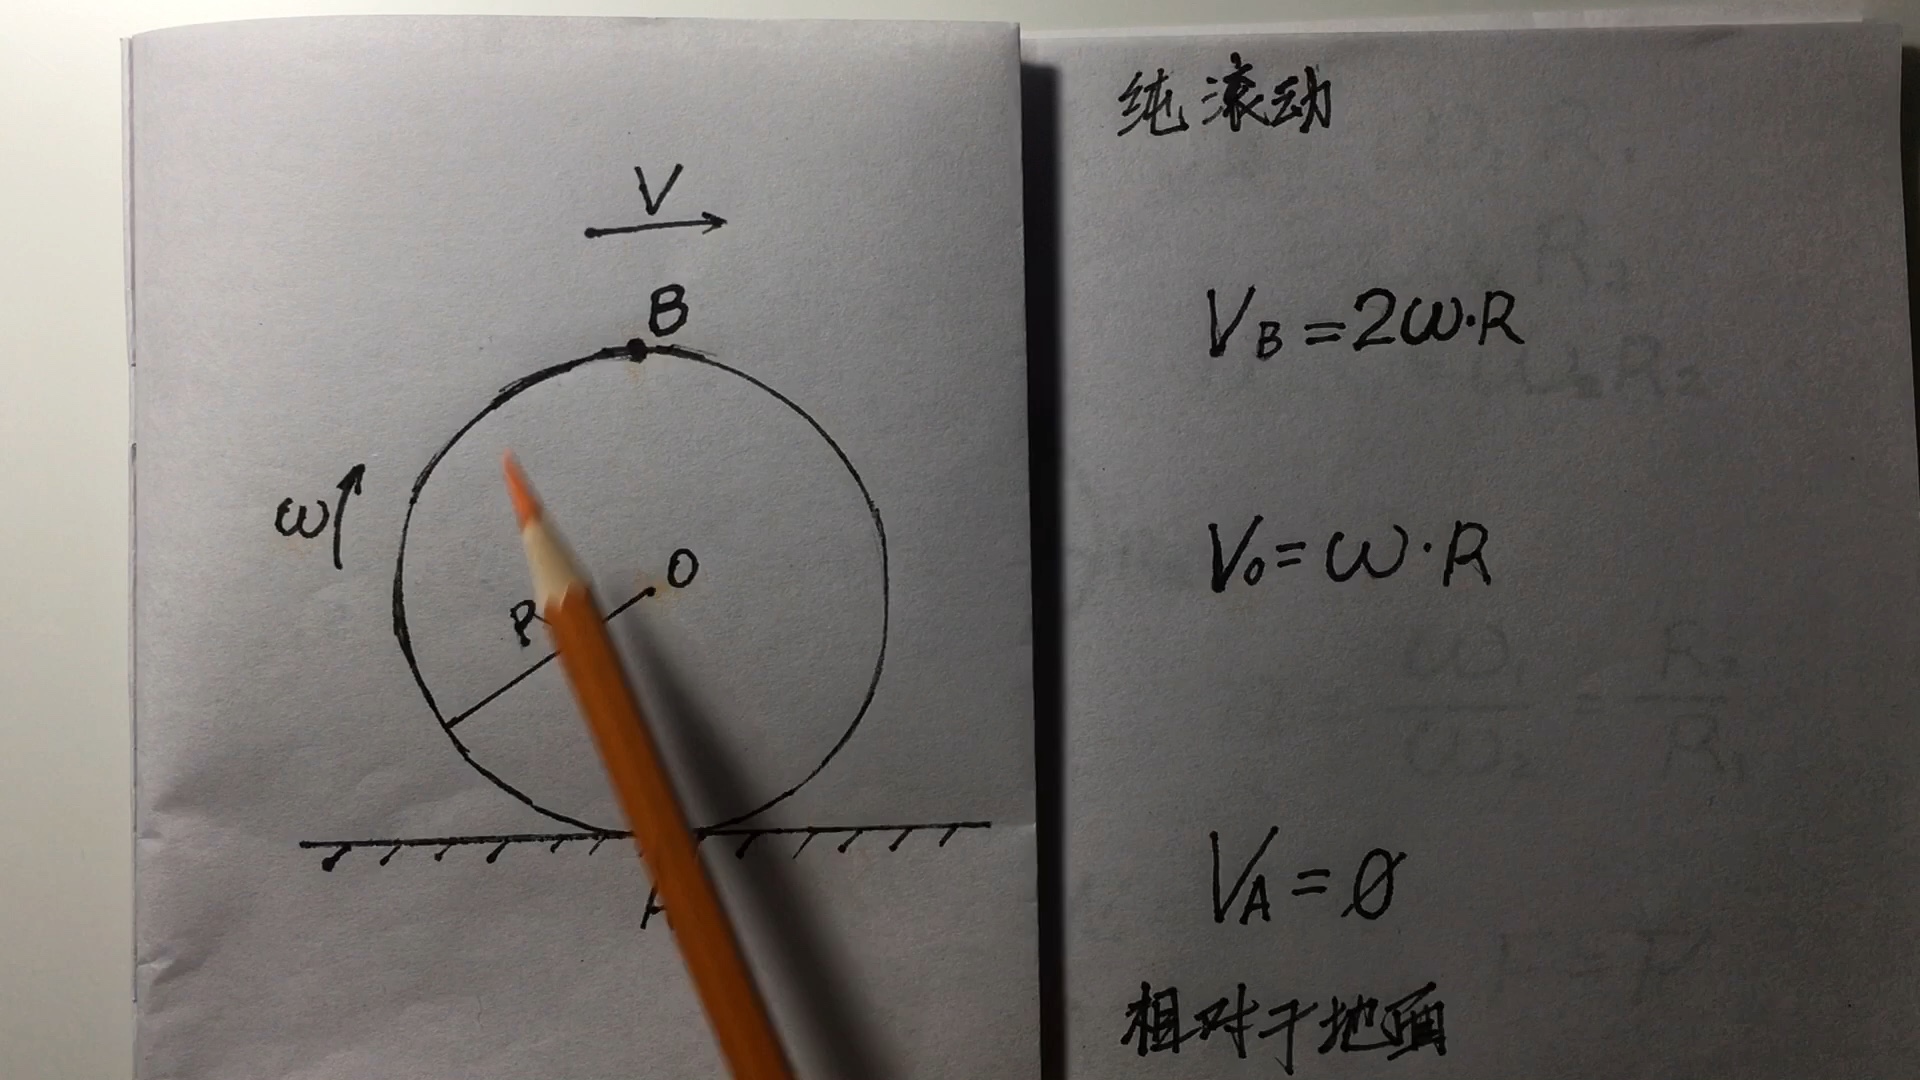 V
B
ω
O
R
A
纯滚动
V_B=2ω·R
V_0=ω·R
V_A=0
相对于地面